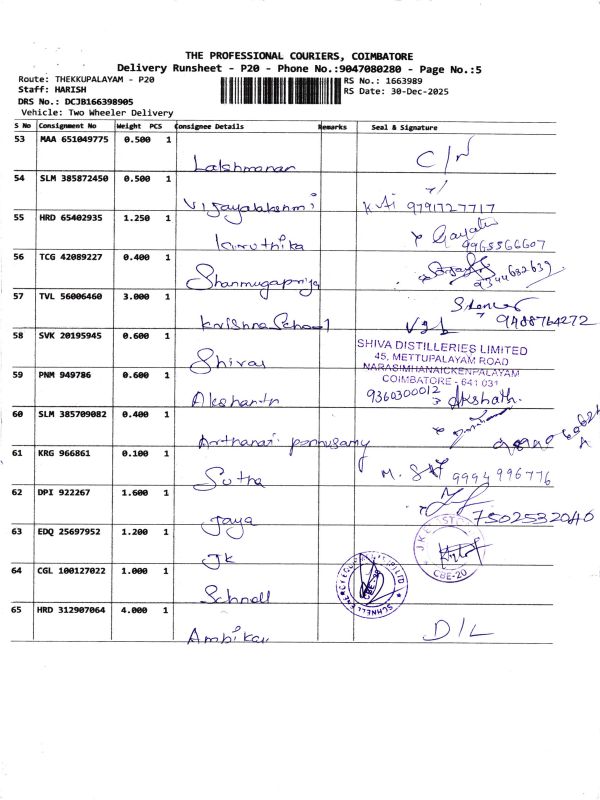 THE PROFESSIONAL COURIERS, COIMBATORE
Delivery Runsheet - P20 - Phone No.:9047080280 - Page No.:5
Route: THEKKUPALAYAM - P20
RS No.: 1663989
Staff: HARISH
RS Date: 30-Dec-2025
DRS No.: DCJB166398905
Vehicle: Two Wheeler Delivery
S No Consignment No Weight PCS Consignee Details Remarks Seal & Signature
53 MAA 651049775 0.500 1 Lakshmanan C/N
54 SLM 385872450 0.500 1 Vijayalakshmi 9791727717
55 HRD 65402935 1.250 1 Kiruthika Gayatri 9965566607
56 TCG 42089227 0.400 1 Shanmugapriya 9344682639
57 TVL 56006460 3.000 1 Krishna School 9488764272
58 SVK 20195945 0.600 1 Shivas
SHIVA DISTILLERIES LIMITED
45, METTUPALAYAM ROAD
NARASIMHANAICKENPALAYAM
COIMBATORE - 641 031
59 PNM 949786 0.600 1 Akshanth 9360300012 Akshath.
60 SLM 385709082 0.400 1 Arthanari ponnusamy
61 KRG 966861 0.100 1 Sutha M. 9994996776
62 DPI 922267 1.600 1 Jaya 7502532040
63 EDQ 25697952 1.200 1 JK
CBE-20
64 CGL 100127022 1.000 1 Schnell
65 HRD 312907064 4.000 1 Ambika D/L